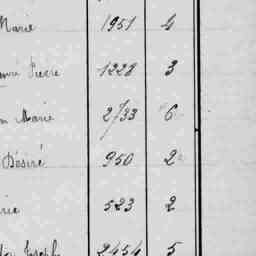 Marie 1951 4
Pierre 1228 3
Marie 2733 6
Désiré 950 2
523 2
Joseph 2454 5